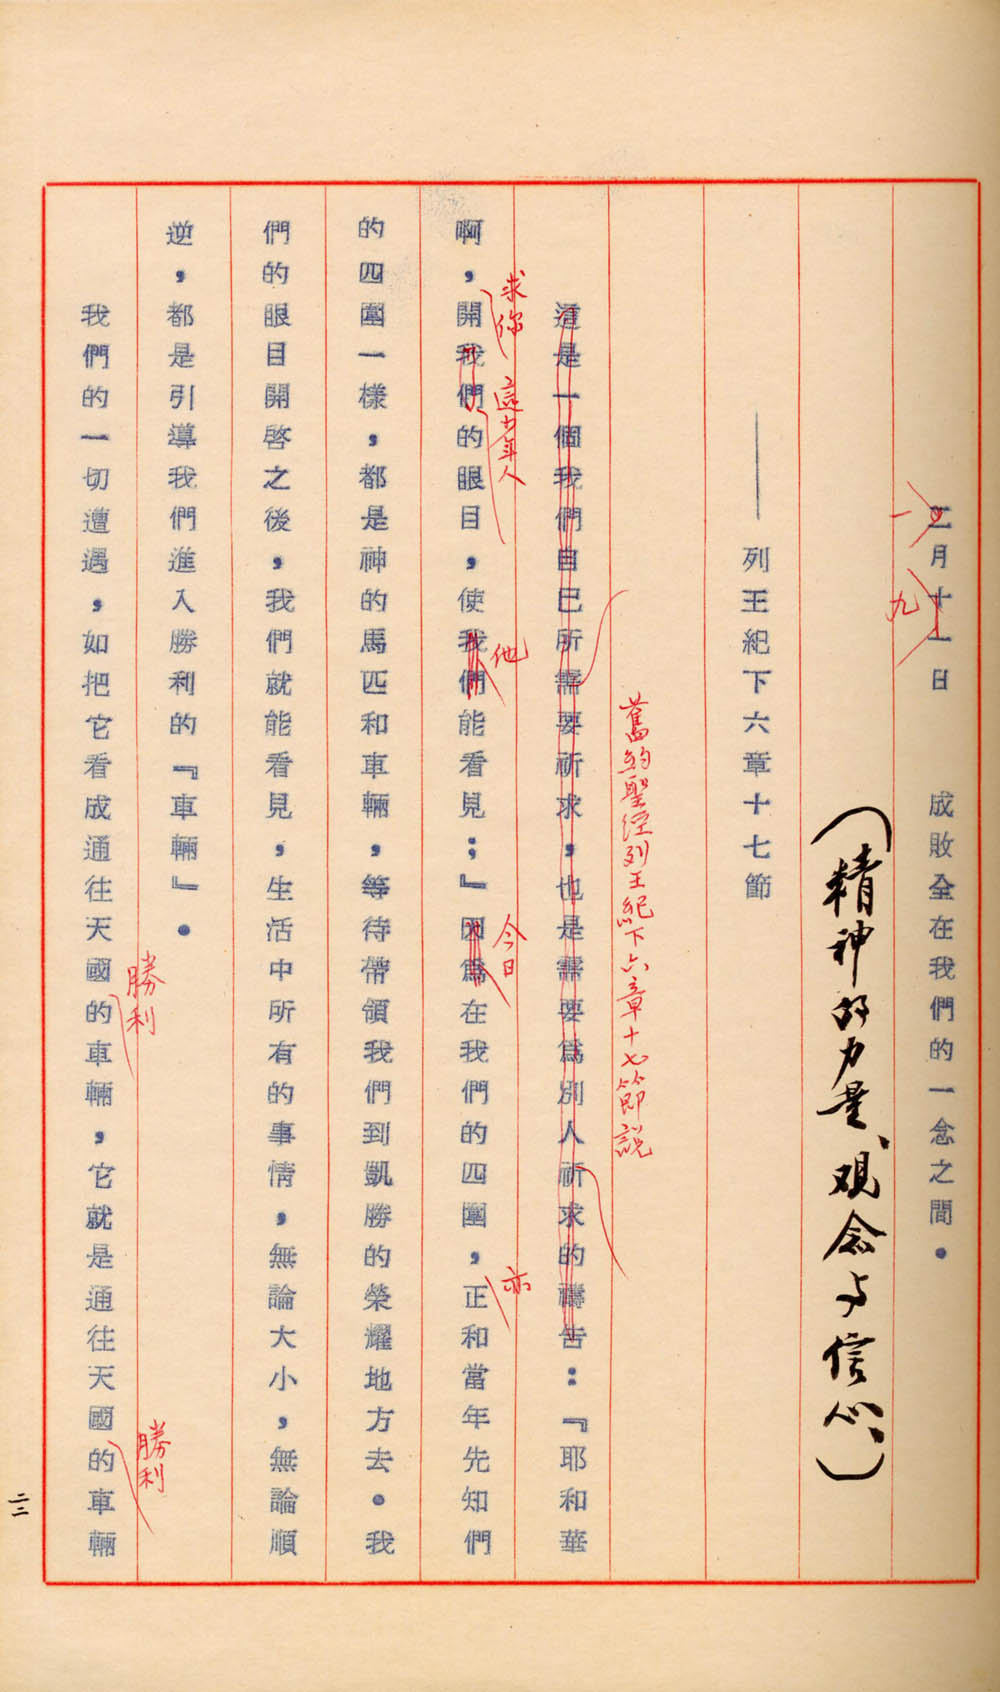 二月十一日　成敗全在我們的一念之間。
一
九
（精神的力量、观念与信心、）
——列王紀下六章十七節
舊約聖經列王紀下六章十七節說
這是一個我們自己所需要祈求，也是需要爲別人祈求的禱告：『耶和華
求你
這少年人
他
今日
亦
啊，開我們的眼目，使我們能看見；』因爲在我們的四圍，正和當年先知們
的四圍一樣，都是神的馬匹和車輛，等待帶領我們到凱勝的榮耀地方去。我
們的眼目開啓之後，我們就能看見，生活中所有的事情，無論大小，無論順
逆，都是引導我們進入勝利的『車輛』。
勝利
勝利
我們的一切遭遇，如把它看成通往天國的車輛，它就是通往天國的車輛
二二